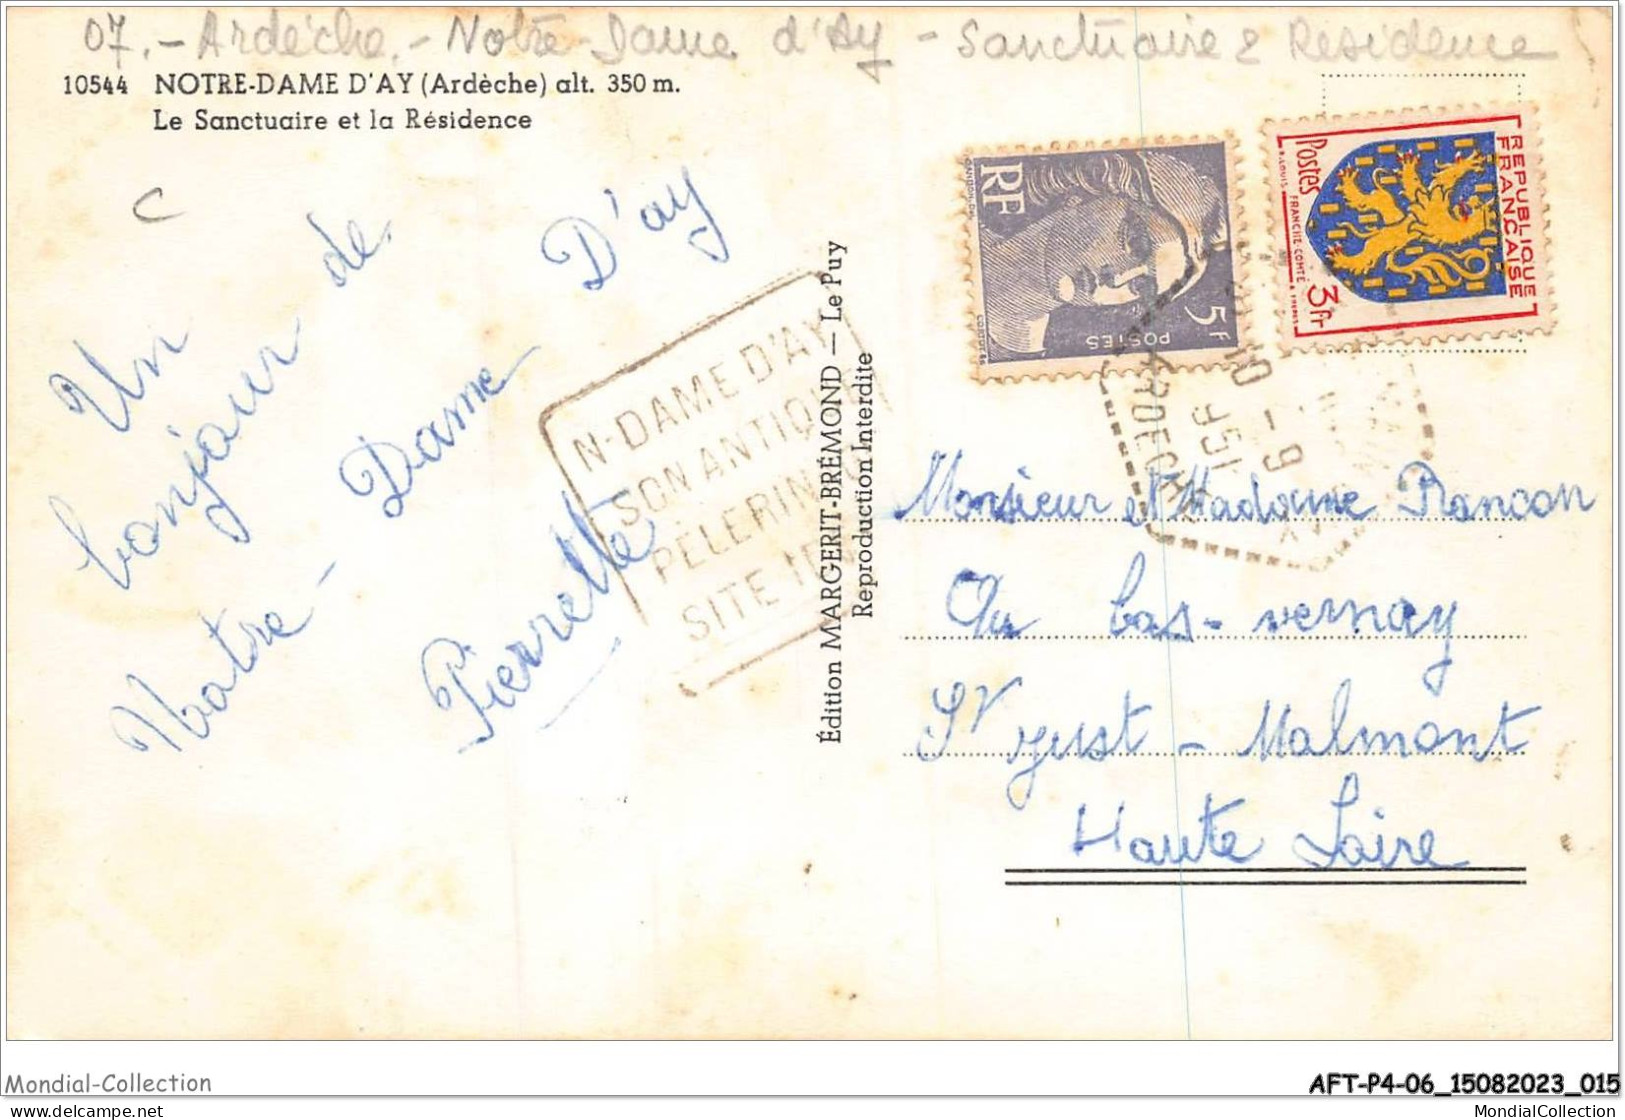 07.- Ardèche.- Notre-Dame d'Ay - Sanctuaire & Résidence
10544 NOTRE-DAME D'AY (Ardèche) alt. 350 m.
Le Sanctuaire et la Résidence
C
Un
bonjour de
Notre - Dame D'ay
Pierrette
N-DAME D'AY
SON ANTIQUE
PÈLERIN
SITE
Édition MARGERIT-BRÉMOND — Le Puy
Reproduction Interdite
RF
5F
POSTES
REPUBLIQUE
FRANÇAISE
Postes
FRANCHE-COMTÉ
3fr
ARDECHE
Monsieur et Madame Rancon
Au bas-vernay
St just - Malmont
Haute Loire
Mondial-Collection
AFT-P4-06_15082023_015
www.delcampe.net
MondialCollection